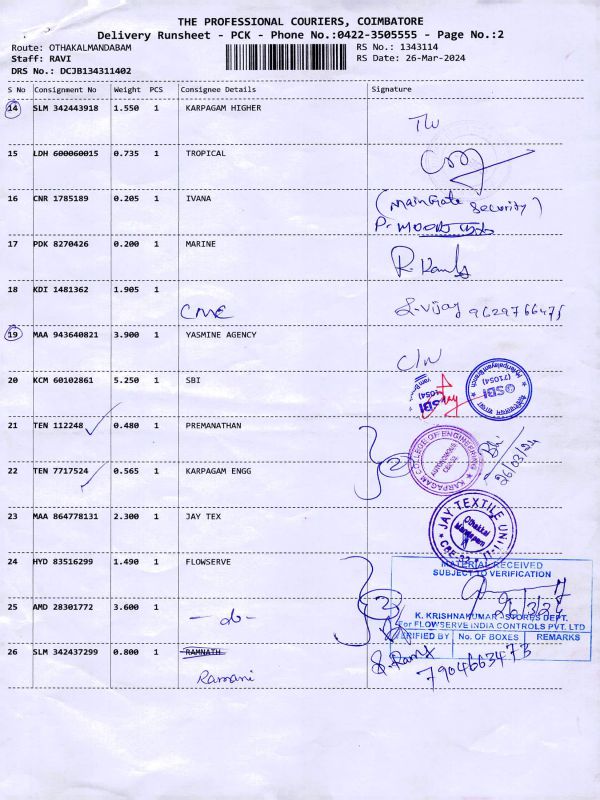 THE PROFESSIONAL COURIERS, COIMBATORE
Delivery Runsheet - PCK - Phone No.:0422-3505555 - Page No.:2
Route: OTHAKALMANDABAM
RS No.: 1343114
Staff: RAVI
RS Date: 26-Mar-2024
DRS No.: DCJB134311402
S No Consignment No Weight PCS Consignee Details Signature
14 SLM 342443918 1.550 1 KARPAGAM HIGHER
15 LDH 600060015 0.735 1 TROPICAL
16 CNR 1785189 0.205 1 IVANA
(MainGate Security)
17 PDK 8270426 0.200 1 MARINE
18 KDI 1481362 1.905 1
CME
S-Vijay
19 MAA 943640821 3.900 1 YASMINE AGENCY
C/N
20 KCM 60102861 5.250 1 SBI
SBI
(71054)
21 TEN 112248 0.480 1 PREMANATHAN
KARPAGAM COLLEGE OF ENGINEERING
AUTONOMOUS
26/03/24
22 TEN 7717524 0.565 1 KARPAGAM ENGG
2
23 MAA 864778131 2.300 1 JAY TEX
JAY TEXTILE UNIT
Othakkal
24 HYD 83516299 1.490 1 FLOWSERVE
MATERIAL RECEIVED
SUBJECT TO VERIFICATION
26/3/24
25 AMD 28301772 3.600 1
- do -
2
K. KRISHNAKUMAR - STORES DEPT.
For FLOWSERVE INDIA CONTROLS PVT. LTD
VERIFIED BY No. OF BOXES REMARKS
26 SLM 342437299 0.800 1 RAMNATH
Ramani
7904663473